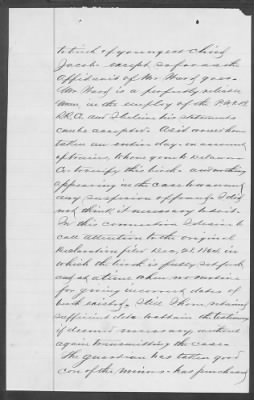 to birth of youngest child
Jacob except so far as the
Affidavit of Mr. Ward goes.
Mr Ward is a perfectly reliable
man, in the employ of the P. W. & B.
R.R. Co. and I believe his statements
can be accepted. As it would have
taken an entire day, in
Co. to verify this birth and nothing
appearing in the case to warrant
any suspicion of fraud, I did
not think it necessary to do it.
In this connection I desire to
call attention to the original
declaration filed
which the birth is fully set forth
and at a time when no motive
for giving incorrect dates of
birth existed, Still I have retained
sufficient data to obtain the testimony
if deemed necessary without
again transmitting the case.
The guardian has taken good
care of the minors - has purchased